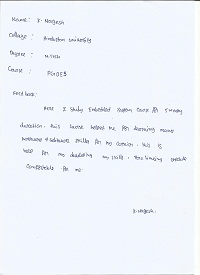 Name : K. Nagesh
College : Hindustan university
Degree : M.Tech
Course : PGDES
Feed back:
Here I Study Embedded System Course for 5 months
duration. this course helped me for learning more
hardware & software skills for my career. this is
help for my developing my skills. Time
comfortable for me.
K.Nagesh.